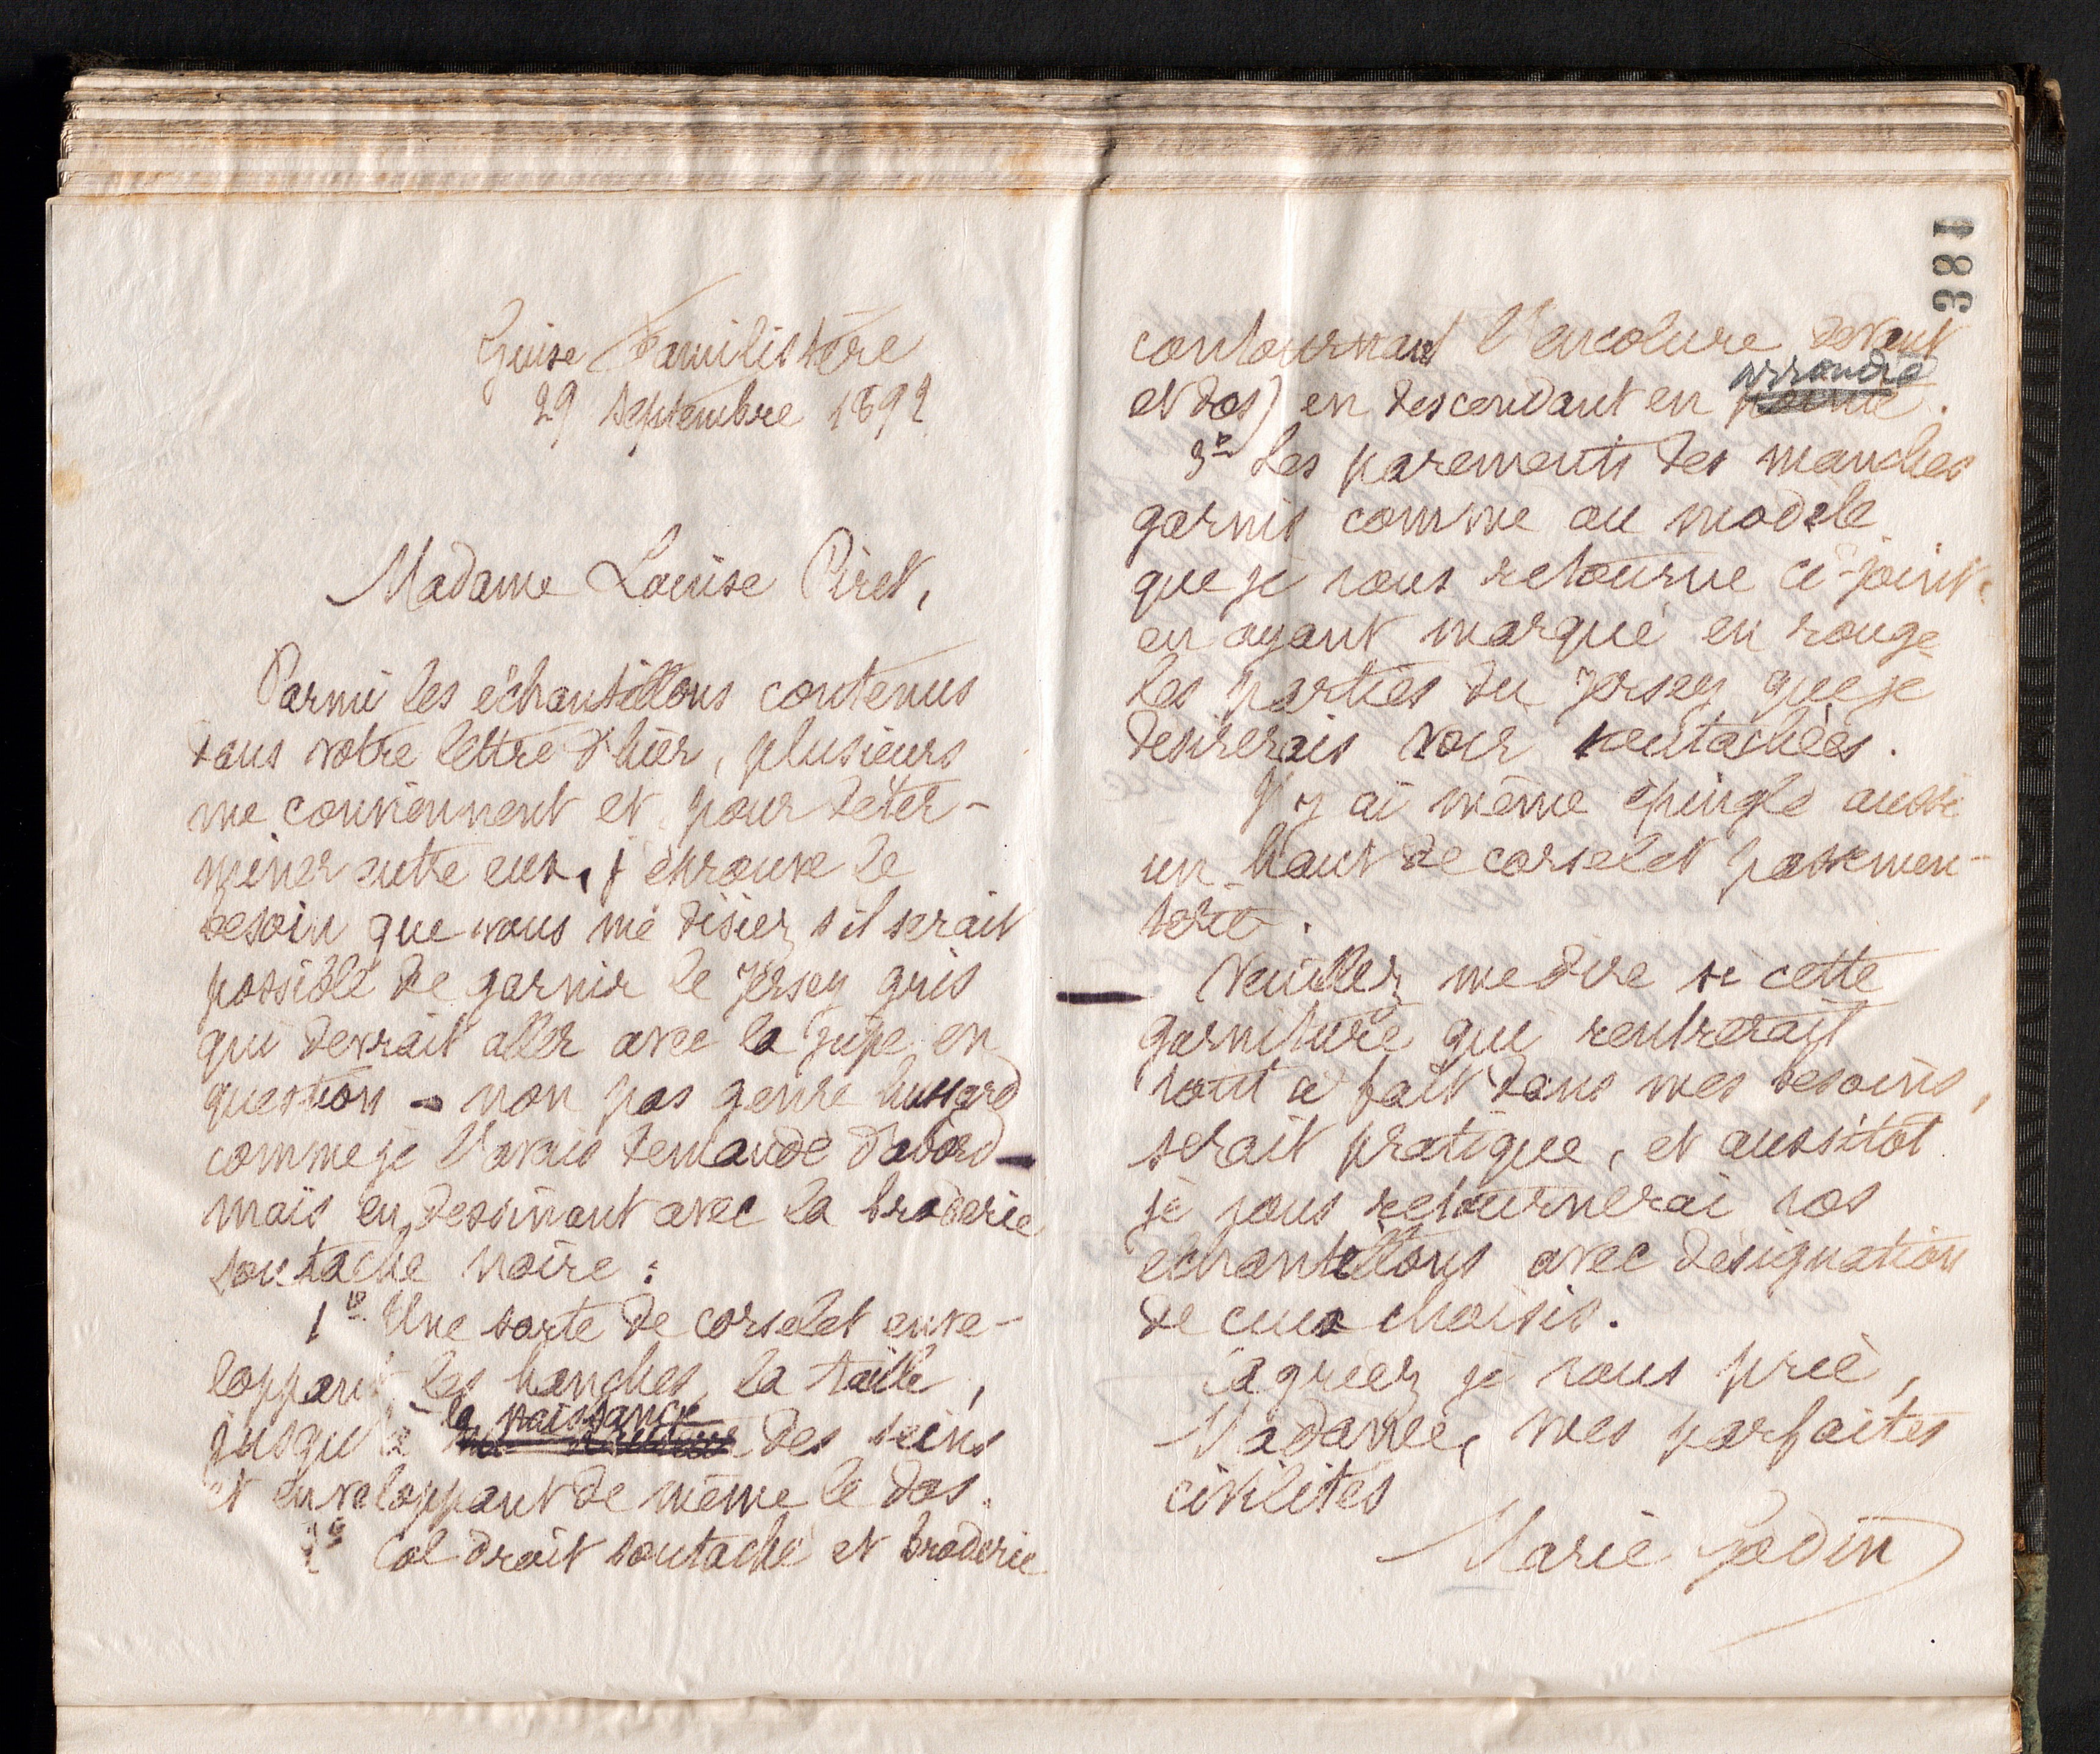 Guise Familistère
29 septembre 1892
Madame Louise Piret,
Parmi les échantillons contenus
dans votre lettre d'hier, plusieurs
me conviennent et pour déter-
miner entre eux, j'éprouve le
besoin que vous me disiez s'il serait
possible de garnir le Jersey gris
qui devrait aller avec la jupe en
question - non pas genre hussard
comme je l'avais demandé d'abord -
mais en dessinant avec la broderie
soutache noire :
1º Une sorte de corselet enve-
loppant les hanches, la taille,
la naissance
jusqu'à des seins
et enveloppant de même le dos.
2º Col droit soutaché et broderie
381
contournant l'encolure devant
arrondie
et dos) en descendant en pointe.
3º Les parements des manches
garnis comme au modèle
que je vous retourne ci-joint
en ayant marqué en rouge
les parties du Jersey que je
désirerais voir soutachées.
J'y ai même épinglé aussi
un haut de corselet passemen-
terie.
Veuillez me dire si cette
garniture qui rentrerait
tout à fait dans mes besoins,
serait pratique, et aussitôt
je vous retournerai vos
échantillons avec désignation
de ceux choisis.
Agréez je vous prie,
Madame, mes parfaites
civilités
Marie Godin